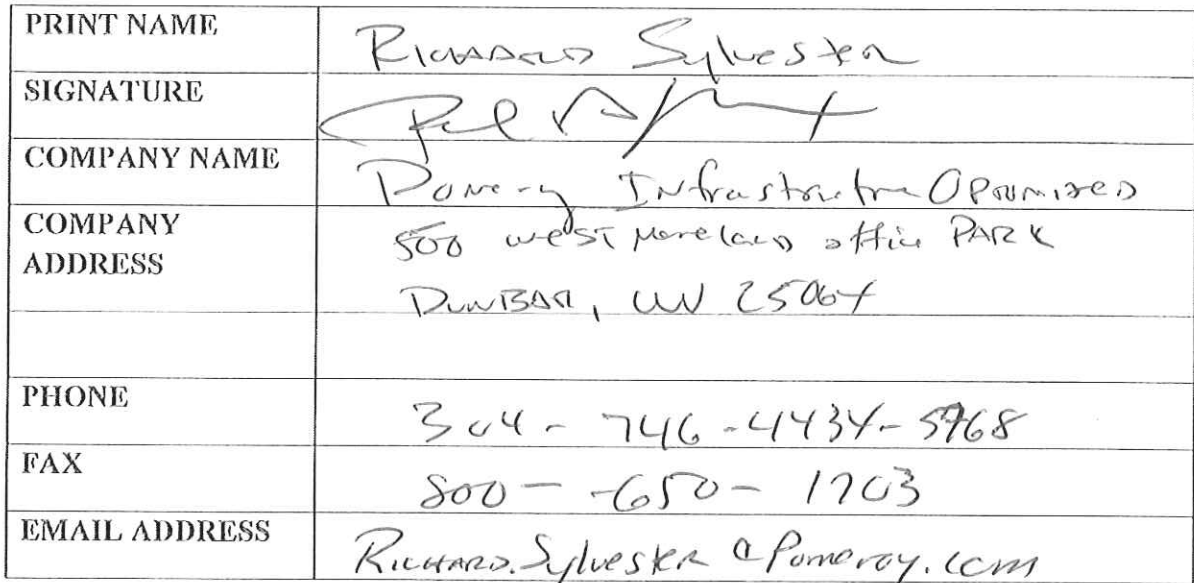 PRINT NAME Richard Sylvester
SIGNATURE
COMPANY NAME Pomeroy Infrastructure Optimized
COMPANY ADDRESS 500 Westmoreland office PARK
DUNBAR, WV 25064
PHONE 304-746-4434-5968
FAX 800--650-1703
EMAIL ADDRESS Richard.Sylvester@Pomeroy.com